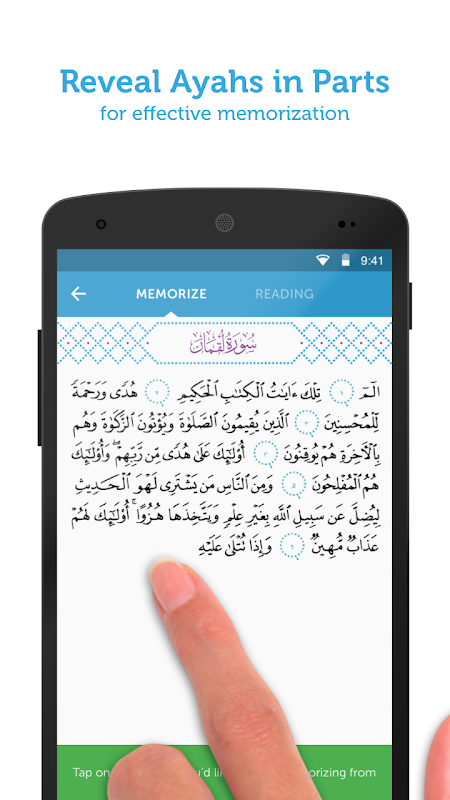 Reveal Ayahs in Parts
for effective memorization
9:41
MEMORIZE READING
سُورَةُ لُقْمَان
الٓمٓ ١ تِلْكَ ءَايَٰتُ ٱلْكِتَٰبِ ٱلْحَكِيمِ ٢ هُدًى وَرَحْمَةً
لِّلْمُحْسِنِينَ ٣ ٱلَّذِينَ يُقِيمُونَ ٱلصَّلَوٰةَ وَيُؤْتُونَ ٱلزَّكَوٰةَ وَهُم
بِٱلْءَاخِرَةِ هُمْ يُوقِنُونَ ٤ أُو۟لَٰٓئِكَ عَلَىٰ هُدًى مِّن رَّبِّهِمْ ۖ وَأُو۟لَٰٓئِكَ
هُمُ ٱلْمُفْلِحُونَ ٥ وَمِنَ ٱلنَّاسِ مَن يَشْتَرِى لَهْوَ ٱلْحَدِيثِ
لِيُضِلَّ عَن سَبِيلِ ٱللَّهِ بِغَيْرِ عِلْمٍ وَيَتَّخِذَهَا هُزُوًا ۚ أُو۟لَٰٓئِكَ لَهُمْ
عَذَابٌ مُّهِينٌ ٦ وَإِذَا تُتْلَىٰ عَلَيْهِ
Tap on you'd li orizing from